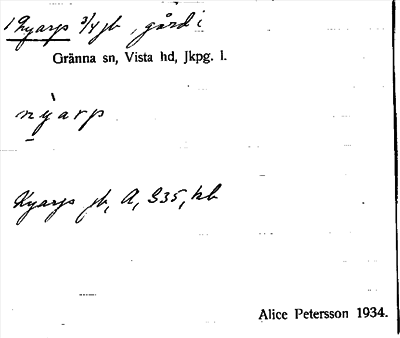 1 Nyarp 3/4 jb, gård i
Gränna sn, Vista hd, Jkpg. l.
nỳarp
Nyarp jb, A, 335, kb
Alice Petersson 1934.